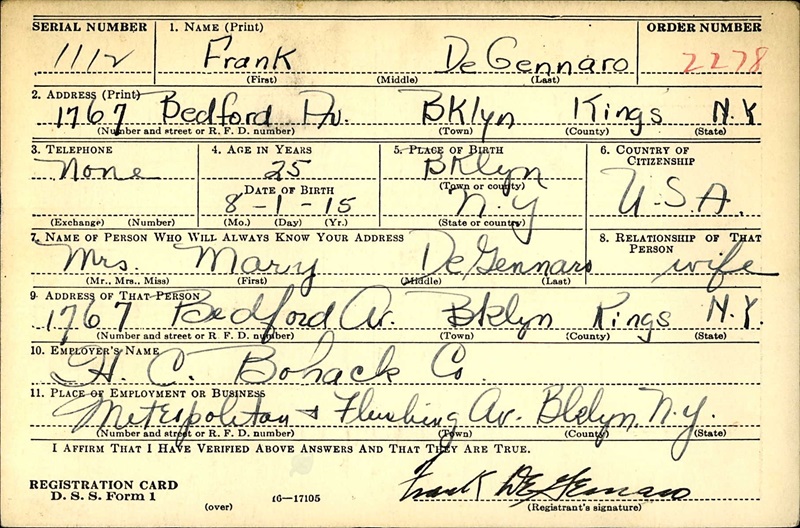 SERIAL NUMBER 1. NAME (Print) ORDER NUMBER
1112 Frank De Gennaro 2278
(First) (Middle) (Last)
2. ADDRESS (Print)
1767 Bedford Av. BKlyn Kings N.Y
(Number and street or R. F. D. number) (Town) (County) (State)
3. TELEPHONE 4. AGE IN YEARS 5. PLACE OF BIRTH 6. COUNTRY OF CITIZENSHIP
None 25 BKlyn U.S.A.
(Town or county)
DATE OF BIRTH
8-1-15 N.Y
(Exchange) (Number) (Mo.) (Day) (Yr.) (State or country)
7. NAME OF PERSON WHO WILL ALWAYS KNOW YOUR ADDRESS 8. RELATIONSHIP OF THAT PERSON
Mrs. Mary De Gennaro wife
(Mr., Mrs., Miss) (First) (Middle) (Last)
9. ADDRESS OF THAT PERSON
1767 Bedford Av. Bklyn Kings N.Y.
(Number and street or R. F. D. number) (Town) (County) (State)
10. EMPLOYER'S NAME
H. C. Bohack Co.
11. PLACE OF EMPLOYMENT OR BUSINESS
Metropolitan + Flushing Av. Bklyn. N.Y.
(Number and street or R. F. D. number) (Town) (County) (State)
I AFFIRM THAT I HAVE VERIFIED ABOVE ANSWERS AND THAT THEY ARE TRUE.
REGISTRATION CARD
D. S. S. Form 1 (over) 16—17105
Frank DeGennaro
(Registrant's signature)